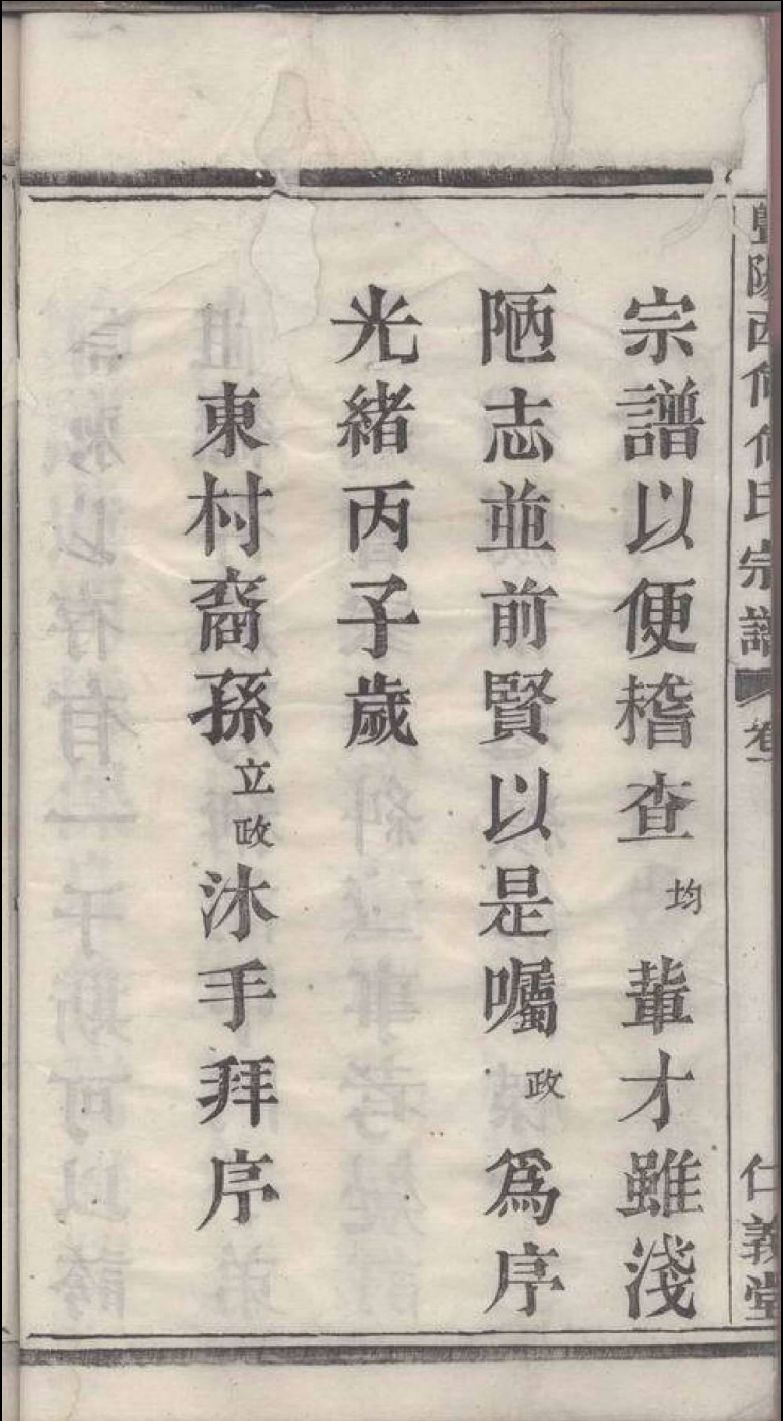 暨陽西何何氏宗譜 卷一 仁義堂
宗譜以便稽查均軰才雖淺
陋志並前賢以是囑政為序
光緒丙子歲
東村裔孫立政沐手拜序